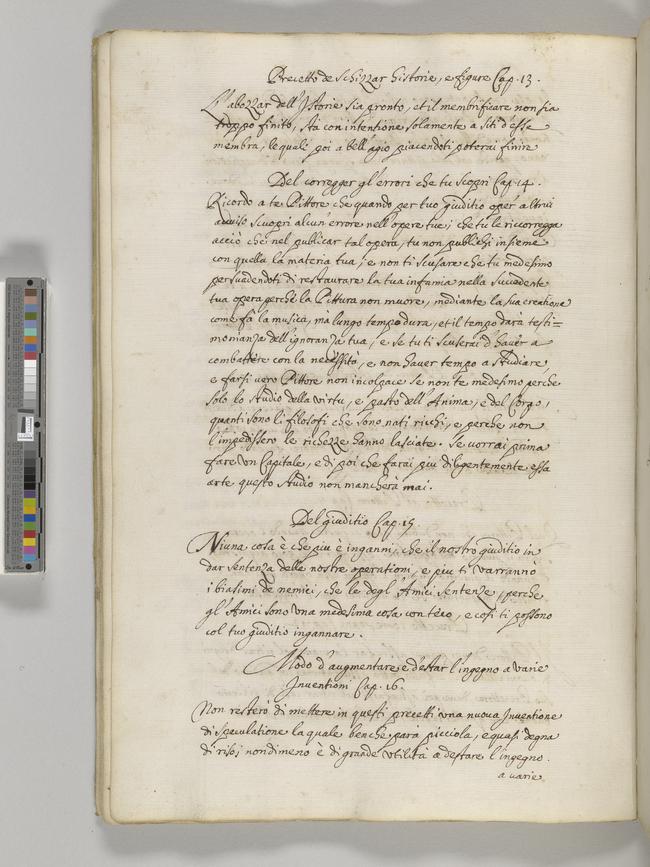 Precetto de schizzar historie, e figure Cap. 13.
L'abozzar dell'Istorie sia pronto, et il membrificare non sia
troppo finito, stà con intentione solamente a siti d'esse
membra, le quali poi a bell'agio piacendoti poterai finire
Del corregger gl'errori che tu scopri Cap. 14.
Ricordo a te Pittore che quando per tuo giuditio o per altrui
adviso scuopri alcun'errore nell'opere tue, che tu le ricorregga
acciò che nel publicar tal opera, tu non publichi insieme
con quella la materia tua, e non ti scusare che tu medesimo
persuedendoti di restaurare la tua infamia nella succedente
tua opera perche la Pittura non muore, mediante la sua creatione
come fà la musica, mà lungo tempo dura, et il tempo darà testi=
monianza dell'ignoranza tua, e se tu ti scuserai d'haver a
combattere con la necessità, e non haver tempo a studiare
e farsi vero Pittore non incolpare se non te medesimo perche
solo lo studio della virtu, e pasto dell'Anima, e del Corpo,
quanti sono li filosofi che sono nati ricchi, e perche non
l'impedissero le richezze l'anno lasciate. se vorrai prima
fare un Capitale, e di poi che farai piu diligentemente essa
arte questo studio non mancherà mai.
Del giuditio Cap. 15.
Niuna cosa è che piu è inganni, che il nostro giuditio in
dar sentenza delle nostre operationi, e piu ti varranno
i biasimi de nemici, che le degl'Amici sentenze, perche
gl'Amici sono una medesima cosa con teco, e cosi ti possono
col tuo giuditio ingannare.
Modo d'augmentare e destar l'ingegno a varie
Inventioni Cap. 16.
Non resterò di mettere in questi precetti una nuova Inventione
di speculatione la quale benche paia picciola, e quasi degna
di riso, nondimeno è di grande utilità a destare l'ingegno.
a varie